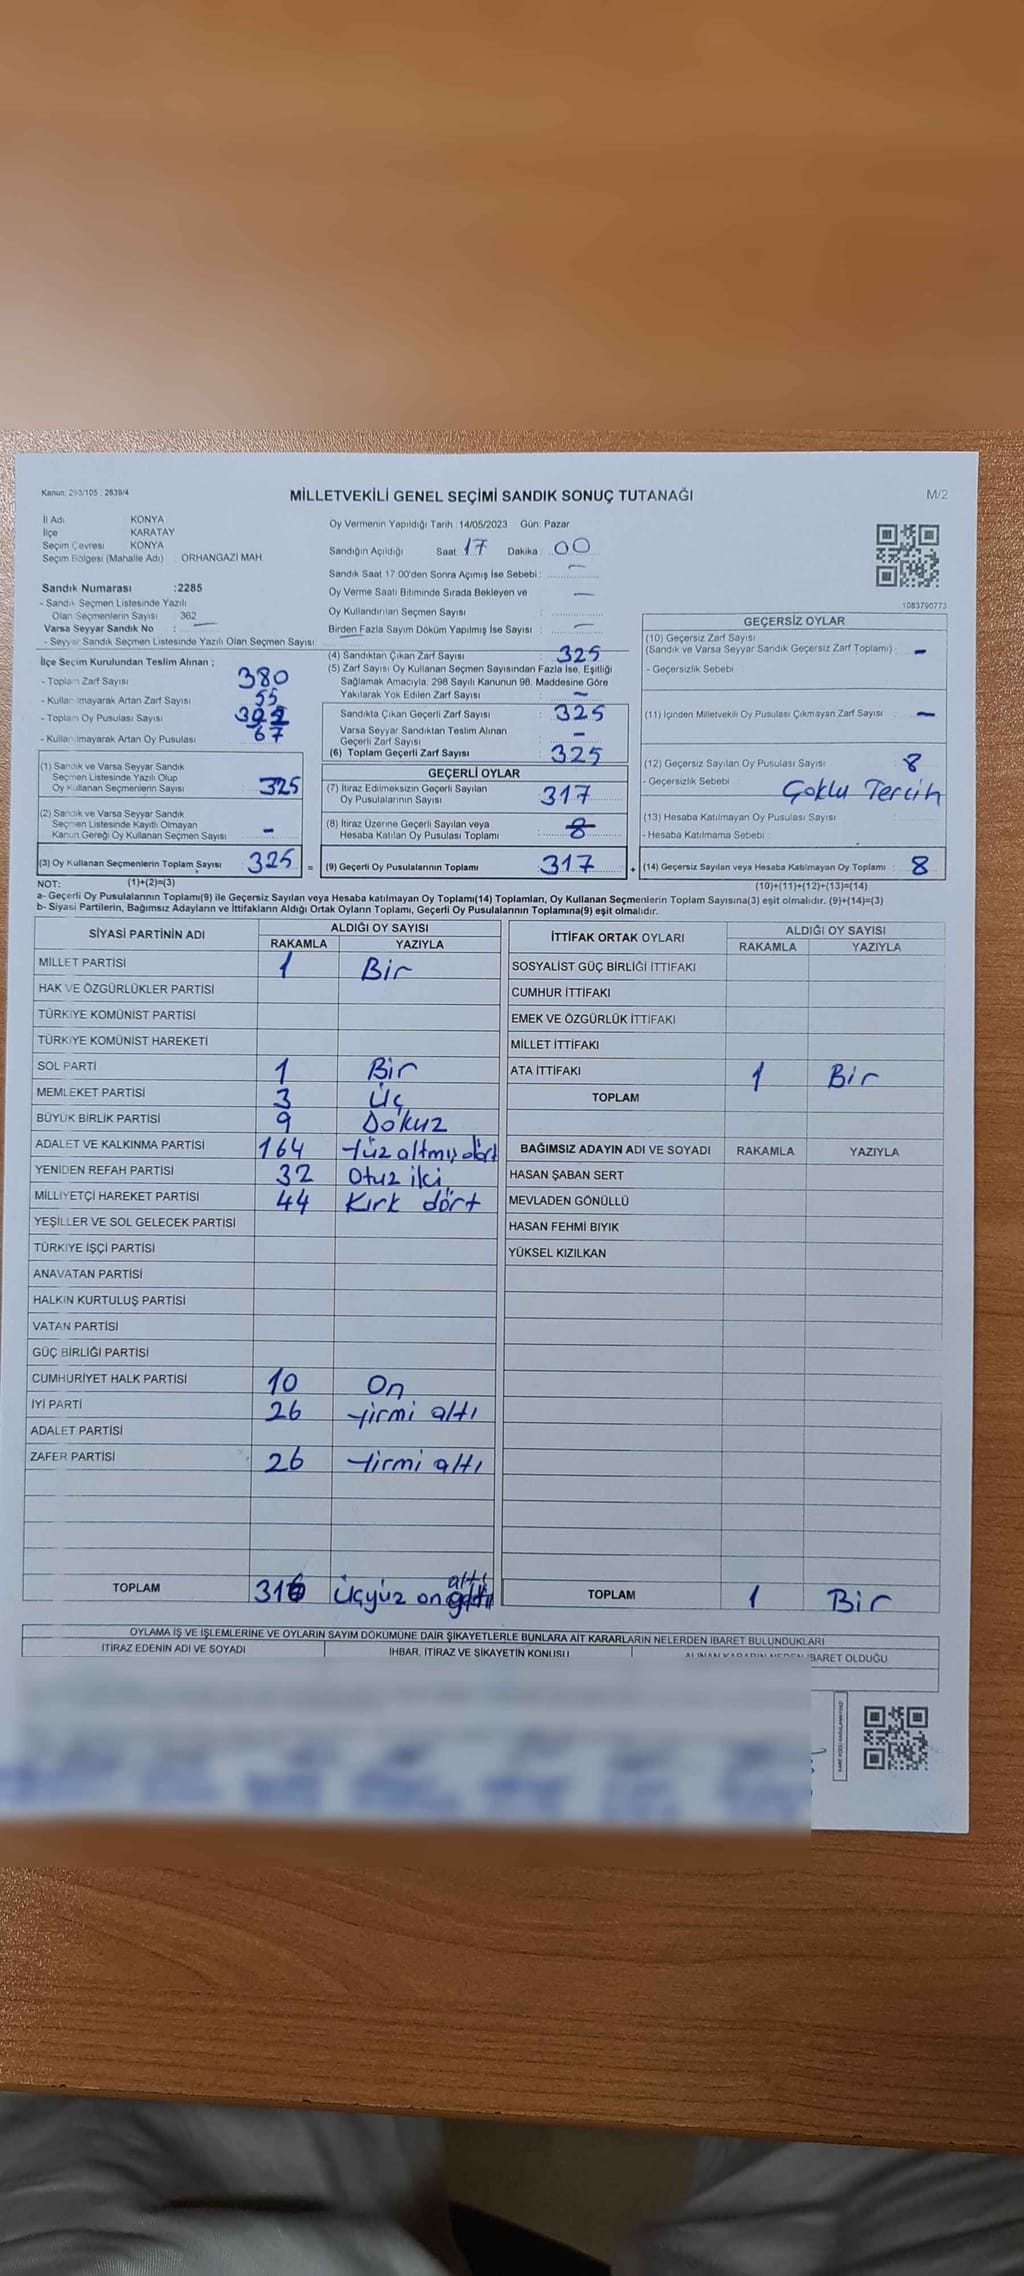 Kanun: 298/105 , 2839/4
MİLLETVEKİLİ GENEL SEÇİMİ SANDIK SONUÇ TUTANAĞI
M/2
İl Adı KONYA
İlçe KARATAY
Seçim Çevresi KONYA
Seçim Bölgesi (Mahalle Adı) : ORHANGAZİ MAH.
Sandık Numarası :2285
- Sandık Seçmen Listesinde Yazılı
Olan Seçmenlerin Sayısı : 362
Varsa Seyyar Sandık No : —
- Seyyar Sandık Seçmen Listesinde Yazılı Olan Seçmen Sayısı :
Oy Vermenin Yapıldığı Tarih :14/05/2023 Gün: Pazar
Sandığın Açıldığı Saat: 17 Dakika : 00
Sandık Saat 17:00'den Sonra Açımış İse Sebebi : —
Oy Verme Saati Bitiminde Sırada Bekleyen ve —
Oy Kullandırılan Seçmen Sayısı :
Birden Fazla Sayım Döküm Yapılmış İse Sayısı : —
1083790773
İlçe Seçim Kurulundan Teslim Alınan ;
- Toplam Zarf Sayısı 380
- Kullanılmayarak Artan Zarf Sayısı 55
- Toplam Oy Pusulası Sayısı 392
- Kullanılmayarak Artan Oy Pusulası 67
(1) Sandık ve Varsa Seyyar Sandık
Seçmen Listesinde Yazılı Olup
Oy Kullanan Seçmenlerin Sayısı : 325
(2) Sandık ve Varsa Seyyar Sandık
Seçmen Listesinde Kayıtlı Olmayan
Kanun Gereği Oy Kullanan Seçmen Sayısı : -
(3) Oy Kullanan Seçmenlerin Toplam Sayısı : 325 =
(4) Sandıktan Çıkan Zarf Sayısı : 325
(5) Zarf Sayısı Oy Kullanan Seçmen Sayısından Fazla İse, Eşitliği
Sağlamak Amacıyla, 298 Sayılı Kanunun 98. Maddesine Göre
Yakılarak Yok Edilen Zarf Sayısı : —
Sandıkta Çıkan Geçerli Zarf Sayısı : 325
Varsa Seyyar Sandıktan Teslim Alınan
Geçerli Zarf Sayısı : -
(6) Toplam Geçerli Zarf Sayısı 325
GEÇERLİ OYLAR
(7) İtiraz Edilmeksizin Geçerli Sayılan
Oy Pusulalarının Sayısı : 317
(8) İtiraz Üzerine Geçerli Sayılan veya
Hesaba Katılan Oy Pusulası Toplamı : 8
(9) Geçerli Oy Pusulalarının Toplamı : 317 +
GEÇERSİZ OYLAR
(10) Geçersiz Zarf Sayısı
(Sandık ve Varsa Seyyar Sandık Geçersiz Zarf Toplamı) : -
- Geçersizlik Sebebi :
(11) İçinden Milletvekili Oy Pusulası Çıkmayan Zarf Sayısı : —
(12) Geçersiz Sayılan Oy Pusulası Sayısı : 8
- Geçersizlik Sebebi : Çoklu Tercih
(13) Hesaba Katılmayan Oy Pusulası Sayısı :
- Hesaba Katılmama Sebebi :
(14) Geçersiz Sayılan veya Hesaba Katılmayan Oy Toplamı : 8
NOT: (1)+(2)=(3) (10)+(11)+(12)+(13)=(14)
a- Geçerli Oy Pusulalarının Toplamı(9) ile Geçersiz Sayılan veya Hesaba katılmayan Oy Toplamı(14) Toplamları, Oy Kullanan Seçmenlerin Toplam Sayısına(3) eşit olmalıdır. (9)+(14)=(3)
b- Siyasi Partilerin, Bağımsız Adayların ve İttifakların Aldığı Ortak Oyların Toplamı, Geçerli Oy Pusulalarının Toplamına(9) eşit olmalıdır.
SİYASİ PARTİNİN ADI ALDIĞI OY SAYISI
RAKAMLA YAZIYLA
MİLLET PARTİSİ 1 Bir
HAK VE ÖZGÜRLÜKLER PARTİSİ
TÜRKİYE KOMÜNİST PARTİSİ
TÜRKİYE KOMÜNİST HAREKETİ
SOL PARTİ 1 Bir
MEMLEKET PARTİSİ 3 Üç
BÜYÜK BİRLİK PARTİSİ 9 Dokuz
ADALET VE KALKINMA PARTİSİ 164 Yüz altmış dört
YENİDEN REFAH PARTİSİ 32 Otuz iki
MİLLİYETÇİ HAREKET PARTİSİ 44 Kırk dört
YEŞİLLER VE SOL GELECEK PARTİSİ
TÜRKİYE İŞÇİ PARTİSİ
ANAVATAN PARTİSİ
HALKIN KURTULUŞ PARTİSİ
VATAN PARTİSİ
GÜÇ BİRLİĞİ PARTİSİ
CUMHURİYET HALK PARTİSİ 10 On
İYİ PARTİ 26 Yirmi altı
ADALET PARTİSİ
ZAFER PARTİSİ 26 Yirmi altı
TOPLAM 316 Üçyüz on altı
İTTİFAK ORTAK OYLARI ALDIĞI OY SAYISI
RAKAMLA YAZIYLA
SOSYALİST GÜÇ BİRLİĞİ İTTİFAKI
CUMHUR İTTİFAKI
EMEK VE ÖZGÜRLÜK İTTİFAKI
MİLLET İTTİFAKI
ATA İTTİFAKI 1 Bir
TOPLAM
BAĞIMSIZ ADAYIN ADI VE SOYADI RAKAMLA YAZIYLA
HASAN ŞABAN SERT
MEVLADEN GÖNÜLLÜ
HASAN FEHMİ BIYIK
YÜKSEL KIZILKAN
TOPLAM 1 Bir
OYLAMA İŞ VE İŞLEMLERİNE VE OYLARIN SAYIM DÖKÜMÜNE DAİR ŞİKAYETLERLE BUNLARA AİT KARARLARIN NELERDEN İBARET BULUNDUKLARI
İTİRAZ EDENİN ADI VE SOYADI İHBAR, İTİRAZ VE ŞİKAYETİN KONUSU ALINAN KARARIN NEDEN İBARET OLDUĞU